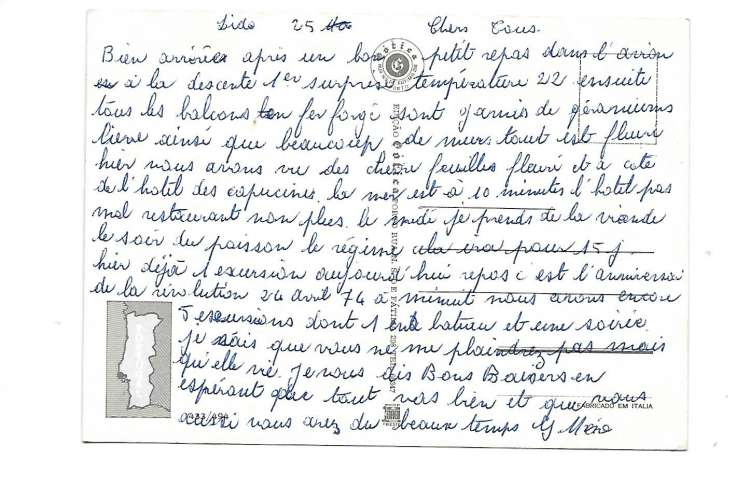 Lido 25 Chers Tous.
Bien arrivée après un bon petit repas dans l'avion
à la descente 1er surprise température 22 ensuite
tous les balcons en fer forgé sont garnis de géraniums
lierre ainsi que beaucoup de murs tout est fleuri
hier nous avons vu des chèvre feuilles fleuri et a coté
de l'hotel des capucines. la mer est à 10 minutes l'hotel pas
mal restaurant non plus. le midi je prends de la viande
le soir du poisson le régime cela ira pour 15 j.
hier déjà 1 excursion aujourd'hui repos c est l'anniversai
de la révolution 24 avril 74 a minuit nous avons encore
5 excursions dont 1 en bateau et une soirée.
je sais que vous ne me plaindrez pas mais
qu'elle vie. je vous dis Bons Baisers en
espérant que tout vas bien et que vous
aussi vous avez du beaux temps G
Gótica
EDIÇÃO Gótica
FABRICADO EM ITALIA